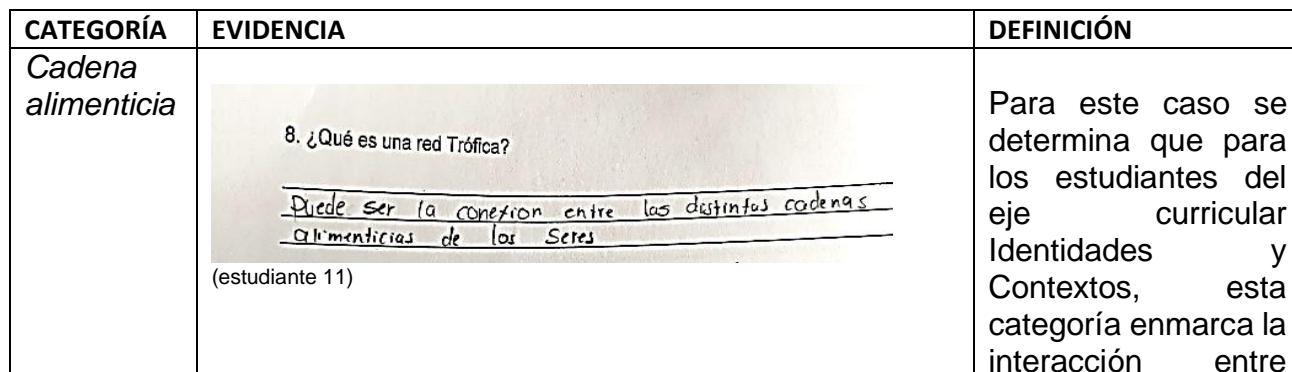 CATEGORÍA
EVIDENCIA
DEFINICIÓN
Cadena
alimenticia
8. ¿Qué es una red Trófica?
Puede ser la conexion entre las distintas cadenas
alimenticias de los Seres
(estudiante 11)
Para este caso se
determina que para
los estudiantes del
eje curricular
Identidades y
Contextos, esta
categoría enmarca la
interacción entre